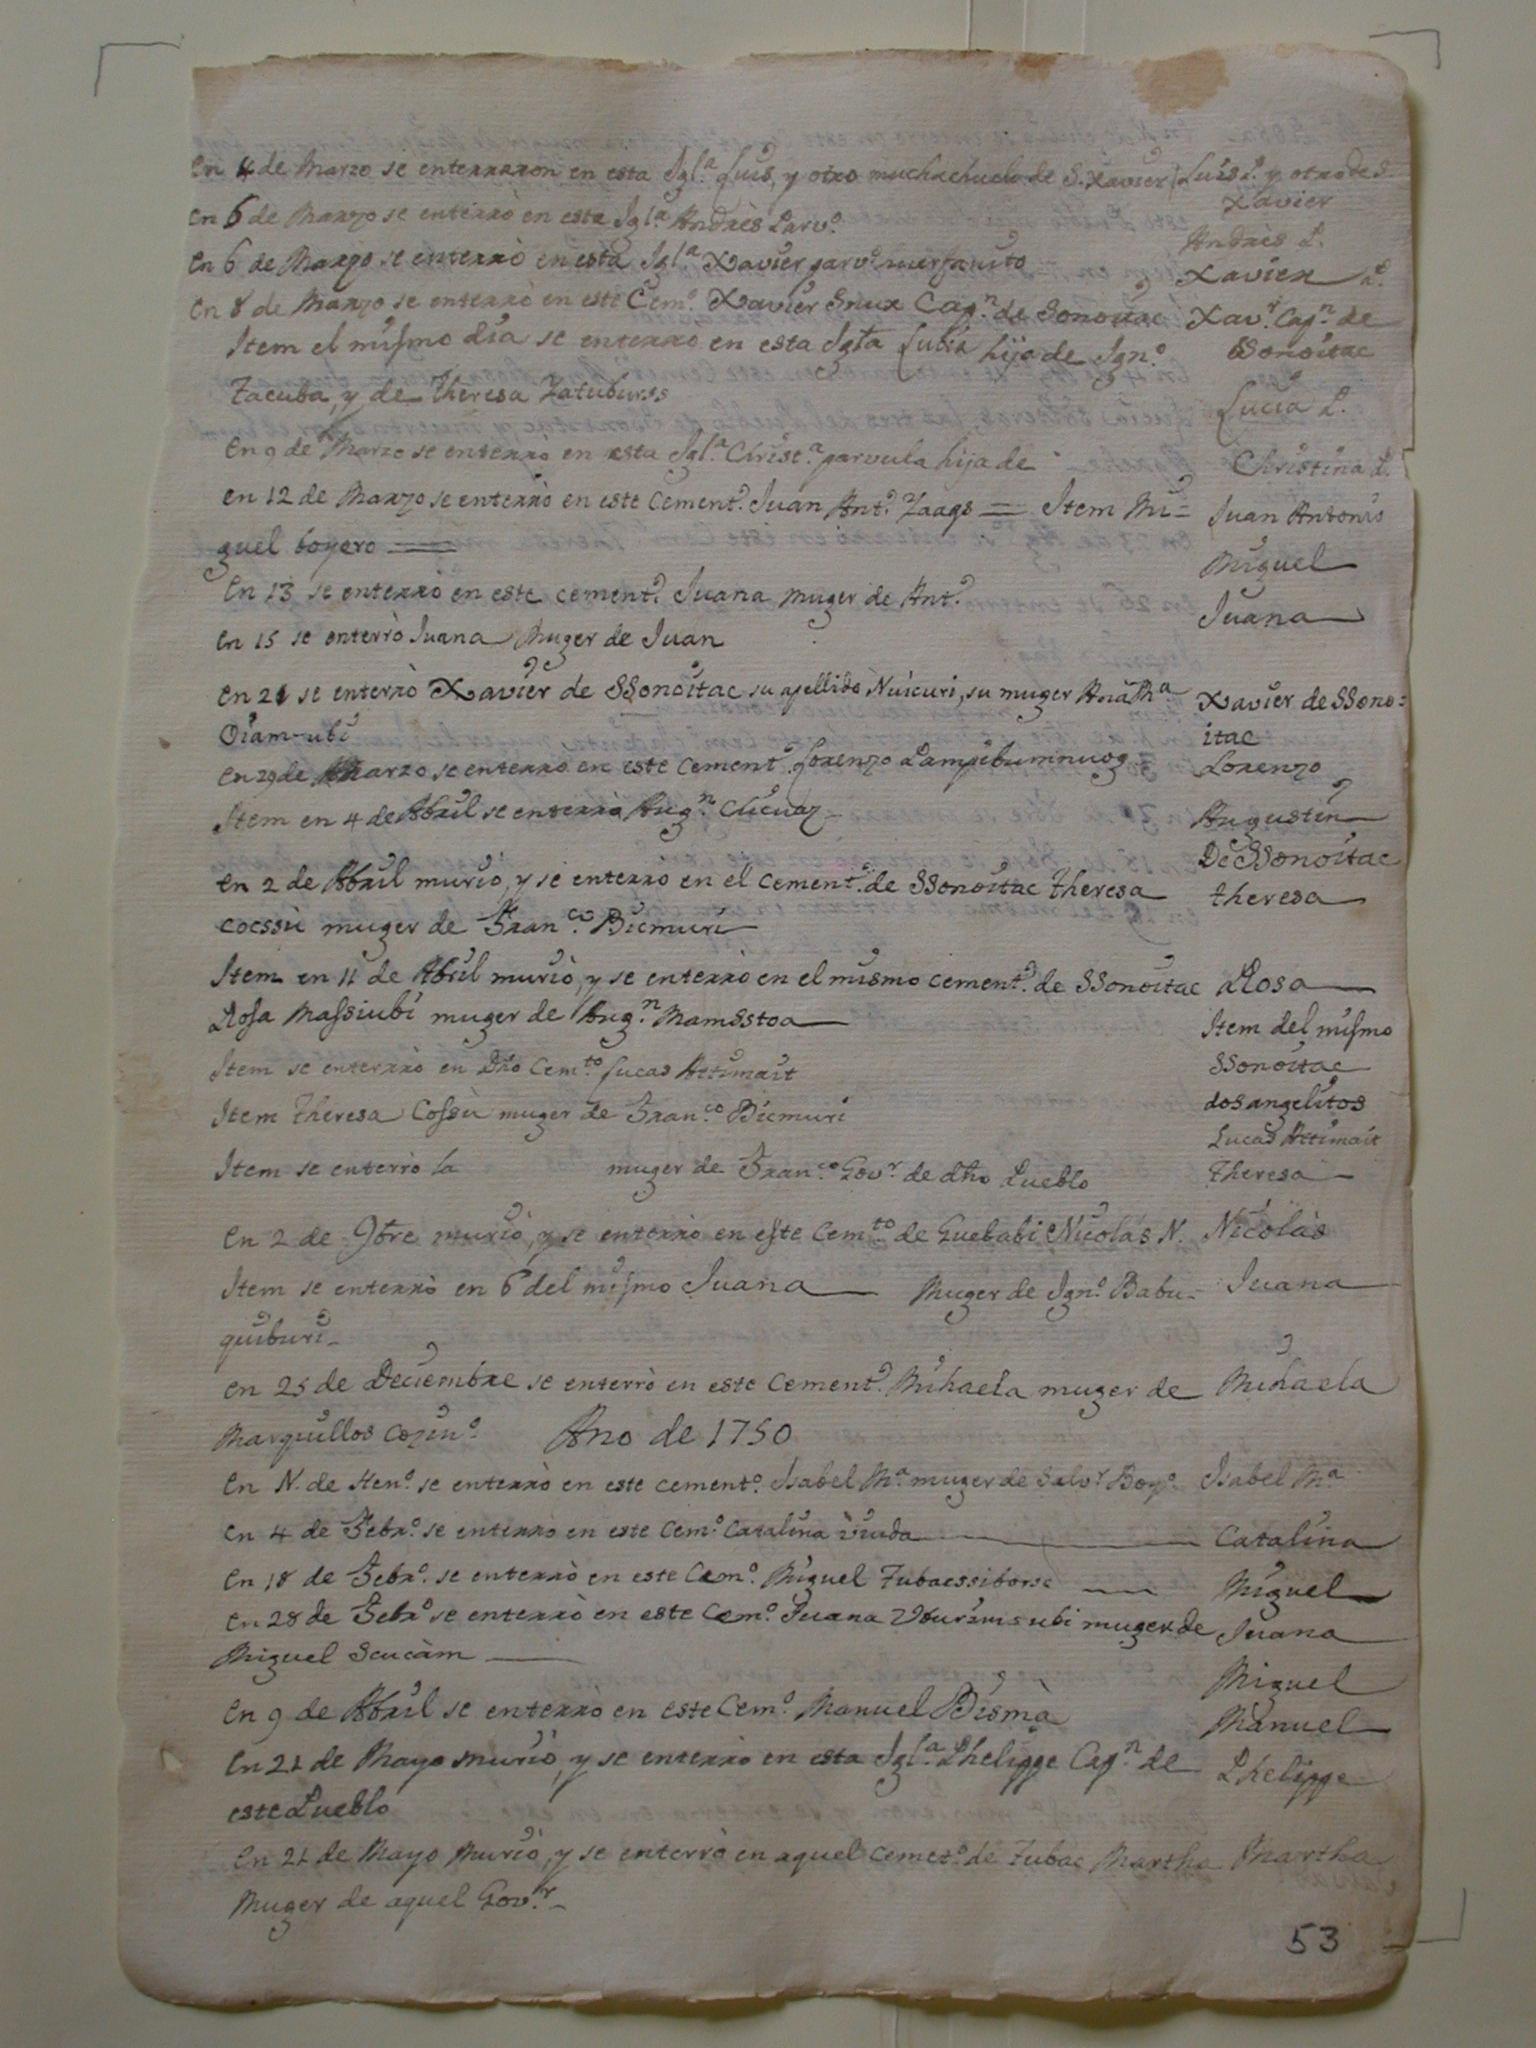 En 4 de Marzo se enterraron en esta Igl.ª Luis, y otro muchachuelo de S. Xavier Luis P. y otro de S.
Xavier
en 6 de Marzo se enterrò en esta Igl.ª Andrès Parv.º
Andrès P.
en 6 de Marzo se enterrò en esta Igl.ª Xavier parv.º huerfanito Xavier P.
en 8 de Marzo se enterrò en este Cem.º Xavier Cap.n de Sonoitac Xav.r Cap.n de
Item el mismo dia se enterro en esta Iglª hija de Ign.º Ssonoitac
Tacuba, y de Theresa Lucia P.
En 9 de Marzo se enterro en esta Igl.ª Christ.ª parvula hija de Christina P.
en 12 de Marzo se enterrò en este Cement.º Juan Ant.º Zaags = Item Mi= Juan Antonio
guel boyero Miguel
En 13 se enterrò en este cement.º Juana muger de Ant.º Juana
en 15 se enterrò Juana Muger de Juan
en 21 se enterrò Xavier de Ssonoitac su apellido Nuicuri, su muger Xavier de Ssono=
Oiam-ubi itac
en 29 de Marzo se enterro en este cement.º Lorenzo Lorenzo
Item en 4 de Abril se enterrò Aug.n Augustin
De Ssonoitac
En 2 de Abril muriò, y se enterrò en el Cement.º de Ssonoitac Theresa Theresa
cocssii muger de Fran.co Bicmuri
Item en 11 de Abril muriò, y se enterrò en el mismo cement.º de Ssonoitac Rosa
Rosa Massiubi muger de Aug.n Mamsstoa Item del mismo
Item se enterrò en Dho Cem.to Lucas Attimait Ssonoitac
Item Theresa Cossii muger de Fran.co Bicmuri dos angelitos
Lucas Attimait
Item se enterrò la muger de Fran.co Gov.r de dho Pueblo Theresa
En 2 de 9bre muriò, y se enterrò en este Cem.to de Guebabi Nicolàs N. Nicolàs
Item se enterrò en 6 del mismo Juana Muger de Ign.º Babu- Juana
quiburi
en 25 de Deciembre se enterrò en este Cement.º Mihaela muger de Mihaela
Marquillos cozin.º Ano de 1750
En N. de Hen.º se enterrò en este cement.º Isabel M.ª muger de Salv.r Boy.º Isabel M.ª
en 4 de Febr.º se enterrò en este Cem.º Catalina viuda Catalina
En 18 de Febr.º se enterrò en este Cem.º Miguel Tubacssiborse Miguel
en 28 de Febr.º se enterrò en este Cem.º Juana muger de Juana
Miguel Scucàm Miguel
En 9 de Abril se enterrò en este Cem.º Manuel Bismà Manuel
En 21 de Mayo muriò, y se enterrò en esta Igl.ª Phelippe Cap.n de Phelippe
este Pueblo
En 21 de Mayo muriò, y se enterrò en aquel cemet.º de Tubac Martha Martha
Muger de aquel Gov.r
53